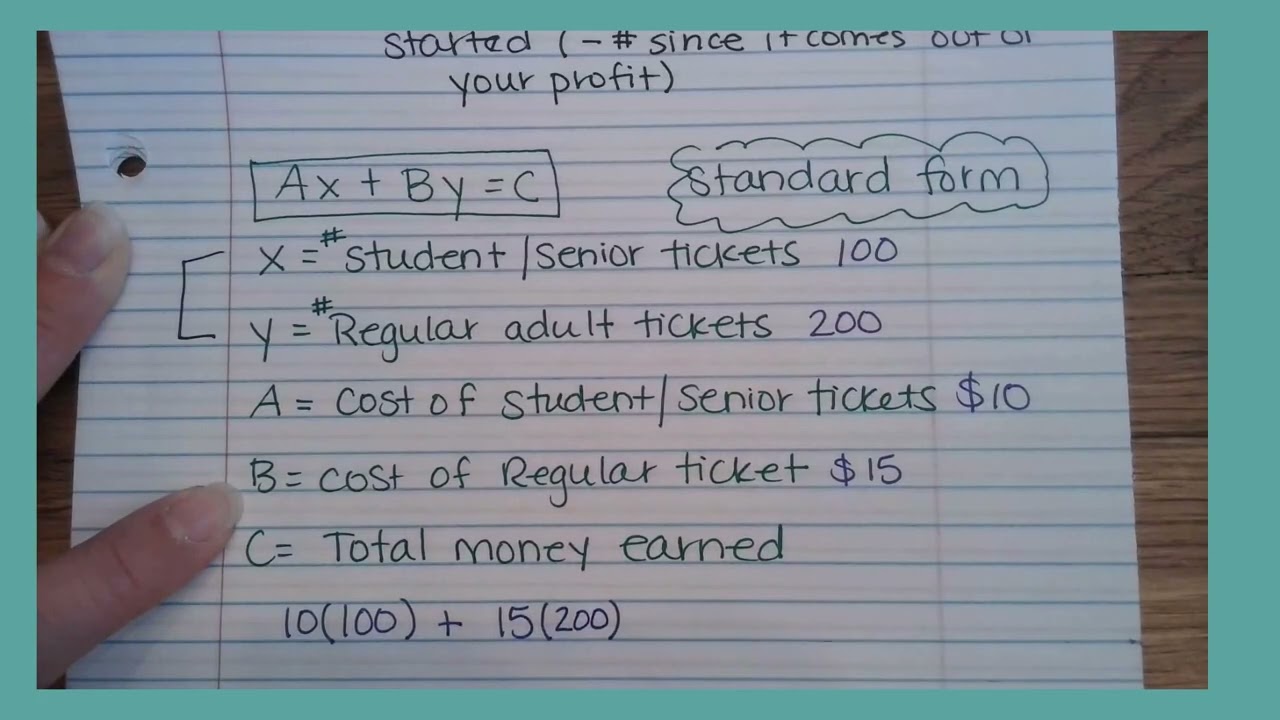 started (- # since it comes out of
your profit)
Ax + By = C
Standard form
x = # student/senior tickets 100
y = # Regular adult tickets 200
A = cost of student/senior tickets $10
B = cost of Regular ticket $15
C = Total money earned
10(100) + 15(200)